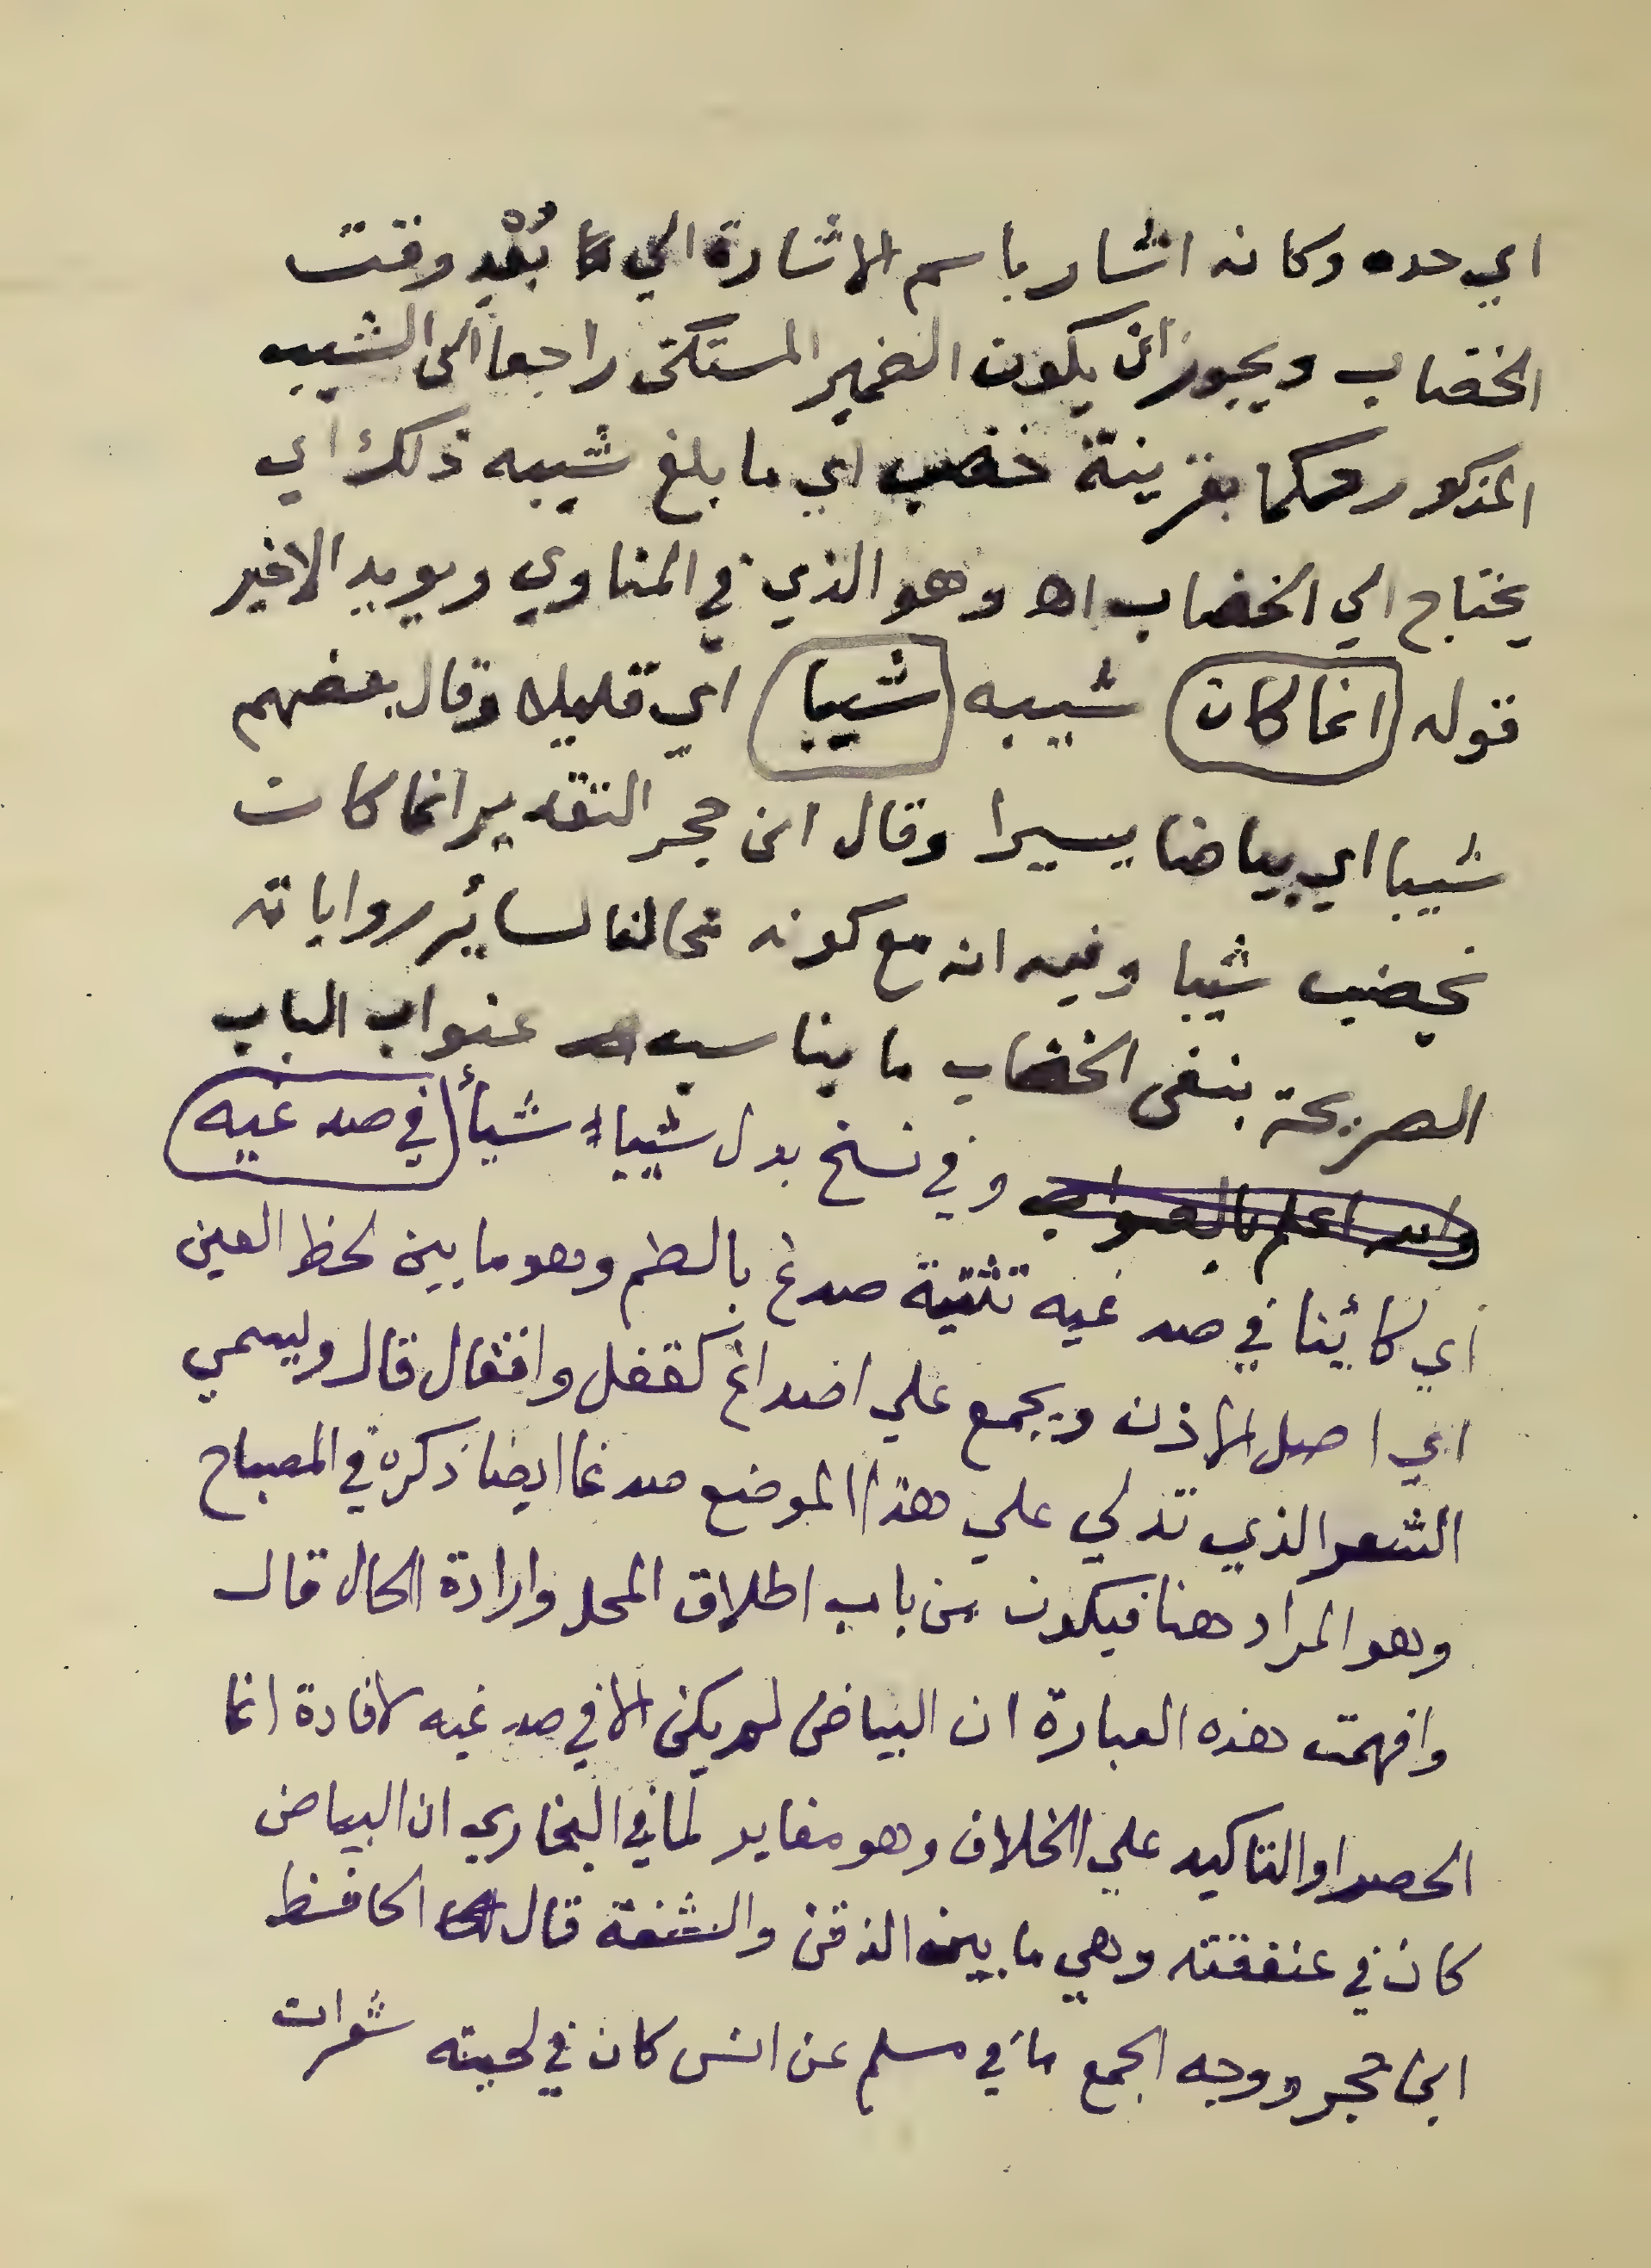 اي حده وكانه اشار باسم الاشارة الي بُعْدِ وقت
الخضاب ويجوز ان يكون الضمير المستكن راجعا الى الشيب
المذكور حكما بقرينة خضب اي ما بلغ شيبه ذلك اي
يحتاج الي الخضاب اه وهو الذي في المناوي ويويد الاخير
قوله انما كان شيبه شيبا اي قليلا وقال بعضهم
شيبا اي بياضا يسيرا وقال ابن حجر التقدير انما كان
يخضب شيبا وفيه انه مع كونه مخالفا لسائر رواياته
الصريحة بنفى الخضاب ما يناسب عنواب الباب
والله اعلم بالصواب وفي نسخ بدل شيباء شيأ في صدغيه
اي كائنا في صدغيه تثنية صدغ بالطم وهو ما بين لحظ العين
اي اصل الاذن ويجمع علي اضداغ كقفل واقفال قال ويسمي
الشعر الذي تدلي علي هذا الموضع صدغا ايضا ذكره في المصباح
وهو المراد هنا فيكون من باب اطلاق المحل وارادة الحال قال
وافهمت هذه العبارة ان البياض لم يكن الا في صدغيه لافادة انما
الحصر او التاكيد علي الخلاف وهو مغاير لما في البخاري ان البياض
كان في عنفقته وهي ما بين الذقن والشفة قال الحافظ
ابن حجر ووجه الجمع ما في مسلم عن انس كان في لحيته شعرات